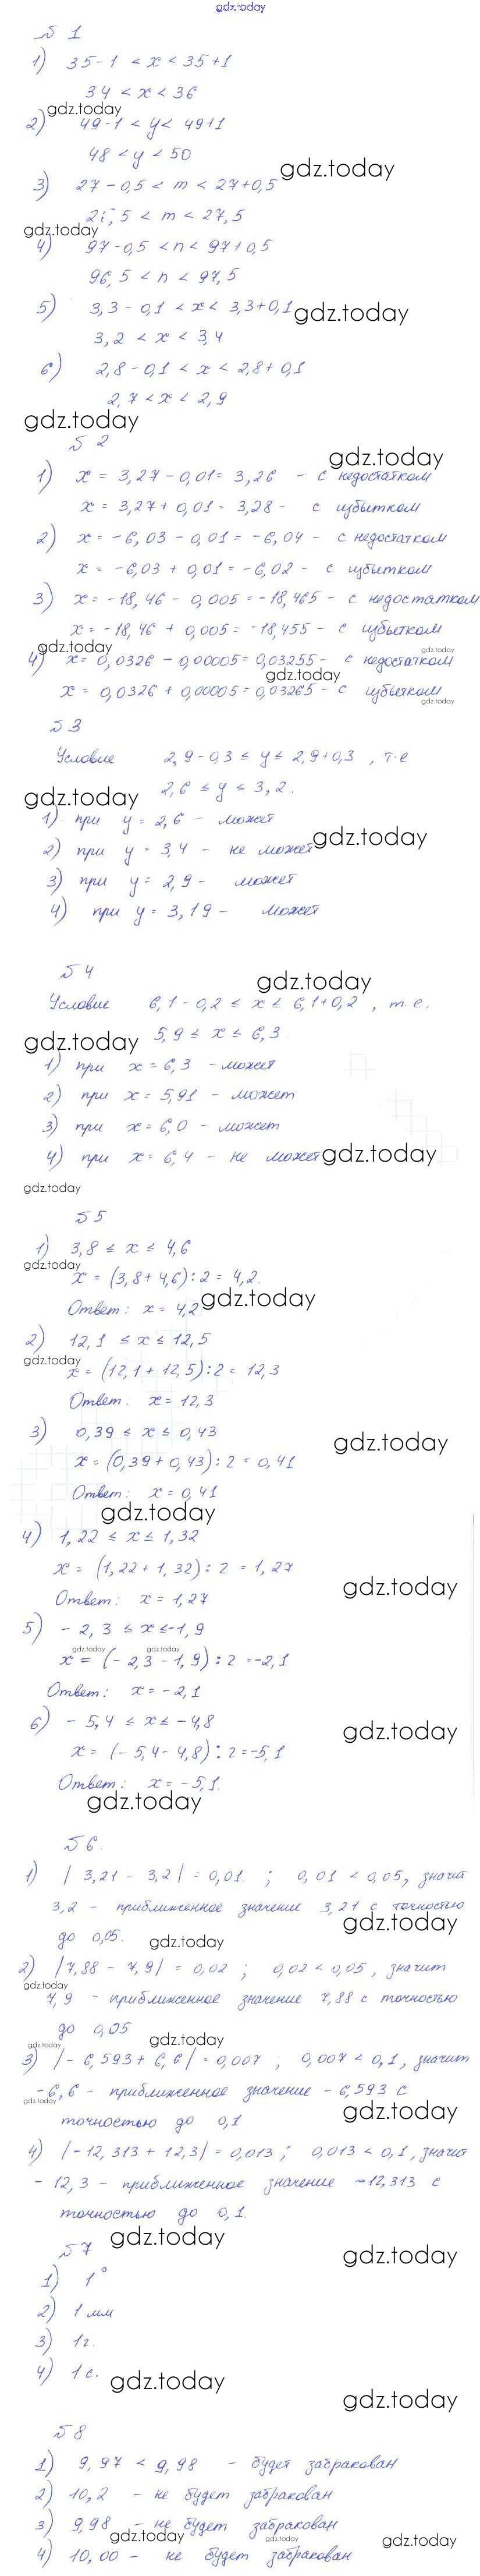 gdz.today
№ 1
1) 35-1 < x < 35+1
34 < x < 36
gdz.today
2) 49-1 < y < 49+1
48 < y < 50
gdz.today
3) 27-0,5 < m < 27+0,5
< m < 27,5
gdz.today
4) 97-0,5 < n < 97+0,5
96,5 < n < 97,5
5) 3,3-0,1 < x < 3,3+0,1
gdz.today
3,2 < x < 3,4
6) 2,8-0,1 < x < 2,8+0,1
2,7 < x < 2,9
gdz.today
№ 2
gdz.today
1) x = 3,27-0,01 = 3,26 - с недостатком
x = 3,27+0,01 = 3,28 - с избытком
2) x = -6,03 - 0,01 = -6,04 - с недостатком
x = -6,03 + 0,01 = -6,02 - с избытком
3) x = -18,46 - 0,005 = -18,465 - с недостатком
x = -18,46 + 0,005 = -18,455 - с избытком
gdz.today
gdz.today
4) x = 0,0326 - 0,00005 = 0,03255 - с недостатком
gdz.today
x = 0,0326 + 0,00005 = 0,03265 - с избытком
gdz.today
№ 3
Условие 2,9-0,3 ≤ y ≤ 2,9+0,3, т.е
2,6 ≤ y ≤ 3,2.
gdz.today
1) при y = 2,6 - может
gdz.today
2) при y = 3,4 - не может
3) при y = 2,9 - может
4) при y = 3,19 - может
№ 4
gdz.today
Условие 6,1-0,2 ≤ x ≤ 6,1+0,2, т.е.
5,9 ≤ x ≤ 6,3
gdz.today
1) при x = 6,3 - может
2) при x = 5,91 - может
3) при x = 6,0 - может
4) при x = 6,4 - не может
gdz.today
gdz.today
№ 5
1) 3,8 ≤ x ≤ 4,6
gdz.today
x = (3,8 + 4,6) : 2 = 4,2.
gdz.today
Ответ: x = 4,2
2) 12,1 ≤ x ≤ 12,5
gdz.today
x = (12,1 + 12,5) : 2 = 12,3
Ответ: x = 12,3
3) 0,39 ≤ x ≤ 0,43
gdz.today
x = (0,39 + 0,43) : 2 = 0,41
Ответ: x = 0,41
gdz.today
4) 1,22 ≤ x ≤ 1,32
x = (1,22 + 1,32) : 2 = 1,27
gdz.today
Ответ: x = 1,27
5) -2,3 ≤ x ≤ -1,9
gdz.today gdz.today
x = (-2,3 - 1,9) : 2 = -2,1
Ответ: x = -2,1
6) -5,4 ≤ x ≤ -4,8
gdz.today
x = (-5,4 - 4,8) : 2 = -5,1
Ответ: x = -5,1.
gdz.today
№ 6.
1) |3,21 - 3,2| = 0,01. ; 0,01 < 0,05, значит
3,2 - приближенное значение 3,21 с точностью
gdz.today
до 0,05.
gdz.today
2) |7,88 - 7,9| = 0,02 ; 0,02 < 0,05, значит
gdz.today
7,9 - приближенное значение 7,88 с точностью
до 0,05
gdz.today
gdz.today
3) |-6,593 + 6,6| = 0,007 ; 0,007 < 0,1, значит
-6,6 - приближенное значение -6,593 с
gdz.today
gdz.today
точностью до 0,1
4) |-12,313 + 12,3| = 0,013 ; 0,013 < 0,1, значит
-12,3 - приближенное значение -12,313 с
точностью до 0,1.
gdz.today
№ 7
gdz.today
1) 1°
2) 1 мм
3) 1г.
4) 1 с.
gdz.today
gdz.today
№ 8
1) 9,97 < 9,98 - будет забракован
2) 10,2 - не будет забракован
3) 9,98 - не будет забракован
gdz.today
gdz.today
gdz.today
4) 10,00 - не будет забракован